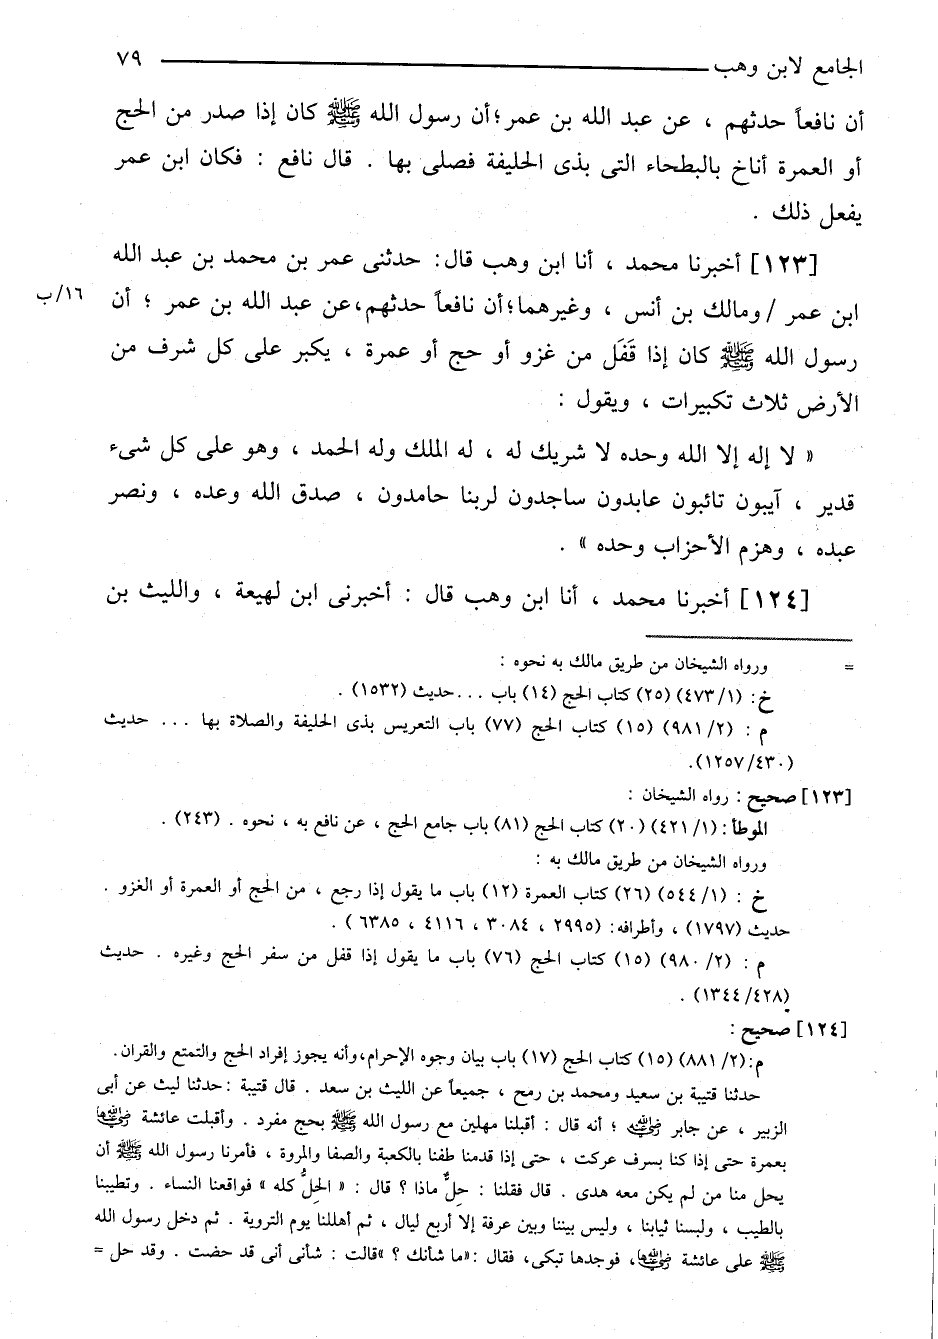 الجامع لابن وهب ــــــــــــــــــــ ٧٩
أن نافعاً حدثهم ، عن عبد الله بن عمر؛أن رسول الله ﷺ كان إذا صدر من الحج
أو العمرة أناخ بالبطحاء التى بذى الحليفة فصلى بها . قال نافع : فكان ابن عمر
يفعل ذلك .
[١٢٣] أخبرنا محمد ، أنا ابن وهب قال: حدثنى عمر بن محمد بن عبد الله
ابن عمر /ومالك بن أنس ، وغيرهما؛أن نافعاً حدثهم،عن عبد الله بن عمر ؛ أن
١٦/ب
رسول الله ﷺ كان إذا قَفَل من غزو أو حج أو عمرة ، يكبر على كل شرف من
الأرض ثلاث تكبيرات ، ويقول :
« لا إله إلا الله وحده لا شريك له ، له الملك وله الحمد ، وهو على كل شىء
قدير ، آيبون تائبون عابدون ساجدون لربنا حامدون ، صدق الله وعده ، ونصر
عبده ، وهزم الأحزاب وحده » .
[١٢٤] أخبرنا محمد ، أنا ابن وهب قال : أخبرنى ابن لهيعة ، والليث بن
= ورواه الشيخان من طريق مالك به نحوه :
خ: (١/ ٤٧٣) (٢٥) كتاب الحج (١٤) باب ...حديث (١٥٣٢) .
م : (٢/ ٩٨١) (١٥) كتاب الحج (٧٧) باب التعريس بذى الحليفة والصلاة بها ... حديث
(٤٣٠/ ١٢٥٧).
[١٢٣] صحيح : رواه الشيخان :
الموطأ : (١/ ٤٢١) (٢٠) كتاب الحج (٨١) باب جامع الحج ، عن نافع به ، نحوه . (٢٤٣) .
ورواه الشيخان من طريق مالك به :
خ : (١/ ٥٤٤) (٢٦) كتاب العمرة (١٢) باب ما يقول إذا رجع ، من الحج أو العمرة أو الغزو .
حديث (١٧٩٧) ، وأطرافه: (٢٩٩٥ ، ٣٠٨٤ ، ٤١١٦ ، ٦٣٨٥ ) .
م : (٢/ ٩٨٠) (١٥) كتاب الحج (٧٦) باب ما يقول إذا قفل من سفر الحج وغيره . حديث
(٤٢٨/ ١٣٤٤) .
[١٢٤] صحيح :
م:(٢/ ٨٨١) (١٥) كتاب الحج (١٧) باب بيان وجوه الإحرام،وأنه يجوز إفراد الحج والتمتع والقران.
حدثنا قتيبة بن سعيد ومحمد بن رمح ، جميعاً عن الليث بن سعد . قال قتيبة :حدثنا ليث عن أبى
الزبير ، عن جابر رضي الله عنه ؛ أنه قال : أقبلنا مهلين مع رسول الله ﷺ بحج مفرد . وأقبلت عائشة رضي الله عنها
بعمرة حتى إذا كنا بسرف عركت ، حتى إذا قدمنا طفنا بالكعبة والصفا والمروة ، فأمرنا رسول الله ﷺ أن
يحل منا من لم يكن معه هدى . قال فقلنا : حِلٌّ ماذا ؟ قال : « الحِلُّ كله » فواقعنا النساء . وتطيبنا
بالطيب ، ولبسنا ثيابنا ، وليس بيننا وبين عرفة إلا أربع ليال ، ثم أهللنا يوم التروية . ثم دخل رسول الله
ﷺ على عائشة رضي الله عنها، فوجدها تبكى، فقال :«ما شأنك ؟ »قالت : شأنى أنى قد حضت . وقد حل =